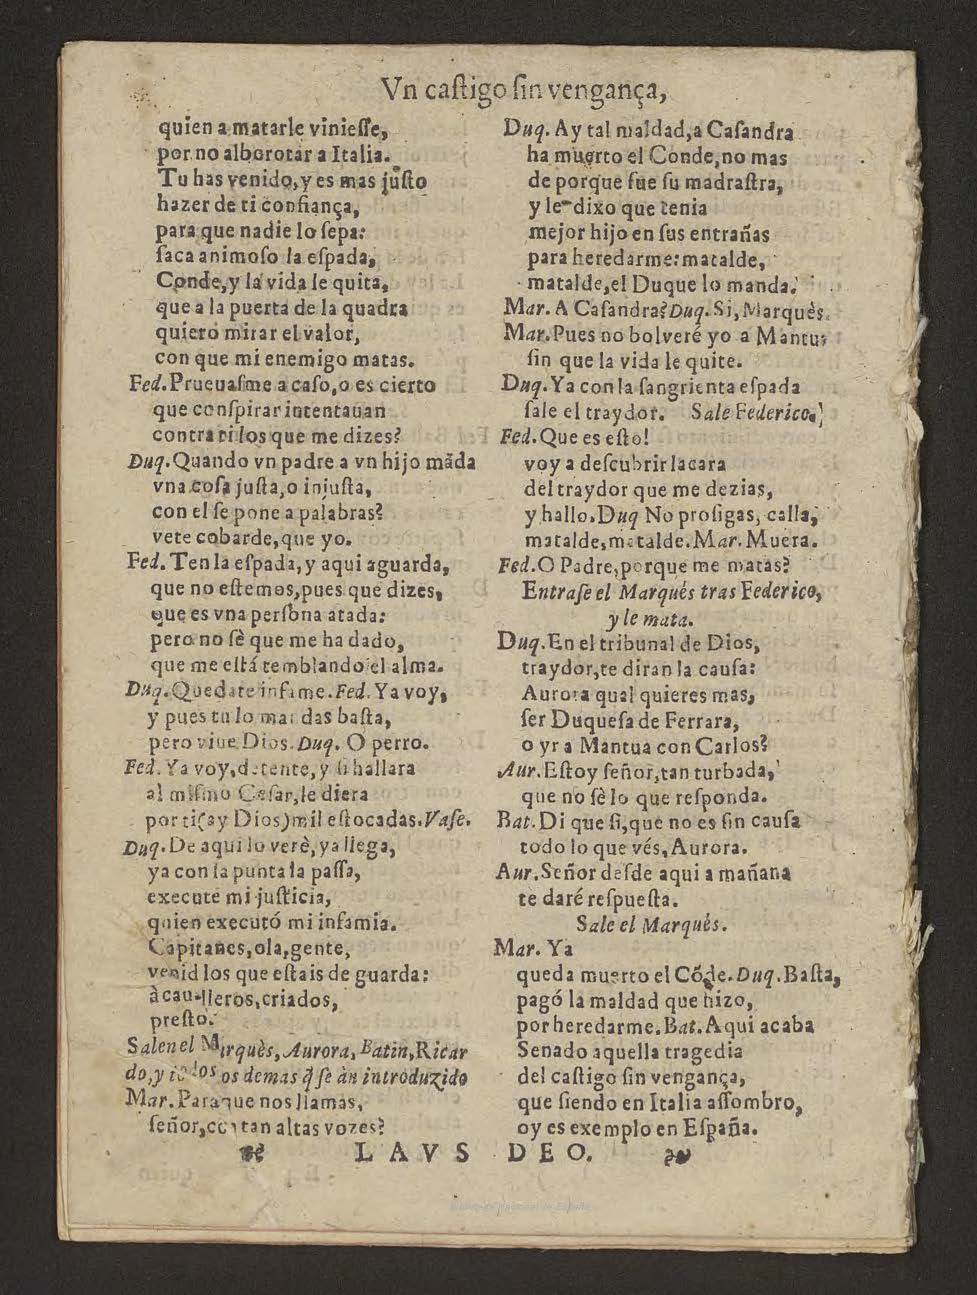 Vn caſtigo ſin vengança,
quien a matarle vinieſſe,
por no alborotar a Italia.
Tu has venido, y es mas juſto
hazer de ti confiança,
para que nadie lo ſepa:
ſaca animoſo la eſpada,
Conde, y la vida le quita,
que a la puerta de la quadra
quiero mirar el valor,
con que mi enemigo matas.
Fed. Prueuaſme a caſo, o es cierto
que conſpirar intentauan
contra ti los que me dizes?
Duq. Quando vn padre a vn hijo mãda
vna coſa juſta, o injuſta,
con el ſe pone a palabras?
vete cobarde, que yo.
Fed. Ten la eſpada, y aqui aguarda,
que no eſtemos, pues que dizes,
que es vna perſona atada:
pero no sè que me ha dado,
que me eſtá temblando el alma.
Duq. Quedate infame. Fed. Ya voy,
y pues tu lo mandas baſta,
pero viue Dios. Duq. O perro.
Fed. Ya voy, detente, y ſi hallara
al miſmo Ceſar, le diera
por ti (ay Dios) mil eſtocadas. Vaſe.
Duq. De aqui lo verè, ya llega,
ya con la punta la paſſa,
execute mi juſticia,
quien executó mi infamia.
Capitanes, ola, gente,
venid los que eſtais de guarda:
à caualleros, criados,
preſto.
Salen el Marquès, Aurora, Batin, Ricar
do, y todos os demas q̃ ſe àn introduzido
Mar. Paraque nos llamas,
ſeñor, con tan altas vozes?
Duq. Ay tal maldad, a Caſandra
ha muerto el Conde, no mas
de porque fue ſu madraſtra,
y le dixo que tenia
mejor hijo en ſus entrañas
para heredarme: matalde,
matalde, el Duque lo manda.
Mar. A Caſandra? Duq. Si, Marquès.
Mar. Pues no bolveré yo a Mantua
ſin que la vida le quite.
Duq. Ya con la ſangrienta eſpada
ſale el traydor. Sale Federico.
Fed. Que es eſto!
voy a deſcubrir la cara
del traydor que me dezias,
y hallo. Duq No proſigas, calla,
matalde, matalde. Mar. Muera.
Fed. O Padre, porque me matas?
Entraſe el Marqués tras Federico,
y le mata.
Duq. En el tribunal de Dios,
traydor, te diran la cauſa:
Aurora qual quieres mas,
ſer Duqueſa de Ferrara,
o yr a Mantua con Carlos?
Aur. Eſtoy ſeñor, tan turbada,
que no sè lo que reſponda.
Bat. Di que ſi, que no es ſin cauſa
todo lo que vés, Aurora.
Aur. Señor deſde aqui a mañana
te daré reſpueſta.
Sale el Marquès.
Mar. Ya
queda muerto el Cõde. Duq. Baſta,
pagó la maldad que hizo,
por heredarme. Bat. Aqui acaba
Senado aquella tragedia
del caſtigo ſin vengança,
que ſiendo en Italia aſſombro,
oy es exemplo en Eſpaña.
LAVS DEO.
Biblioteca Nacional de España